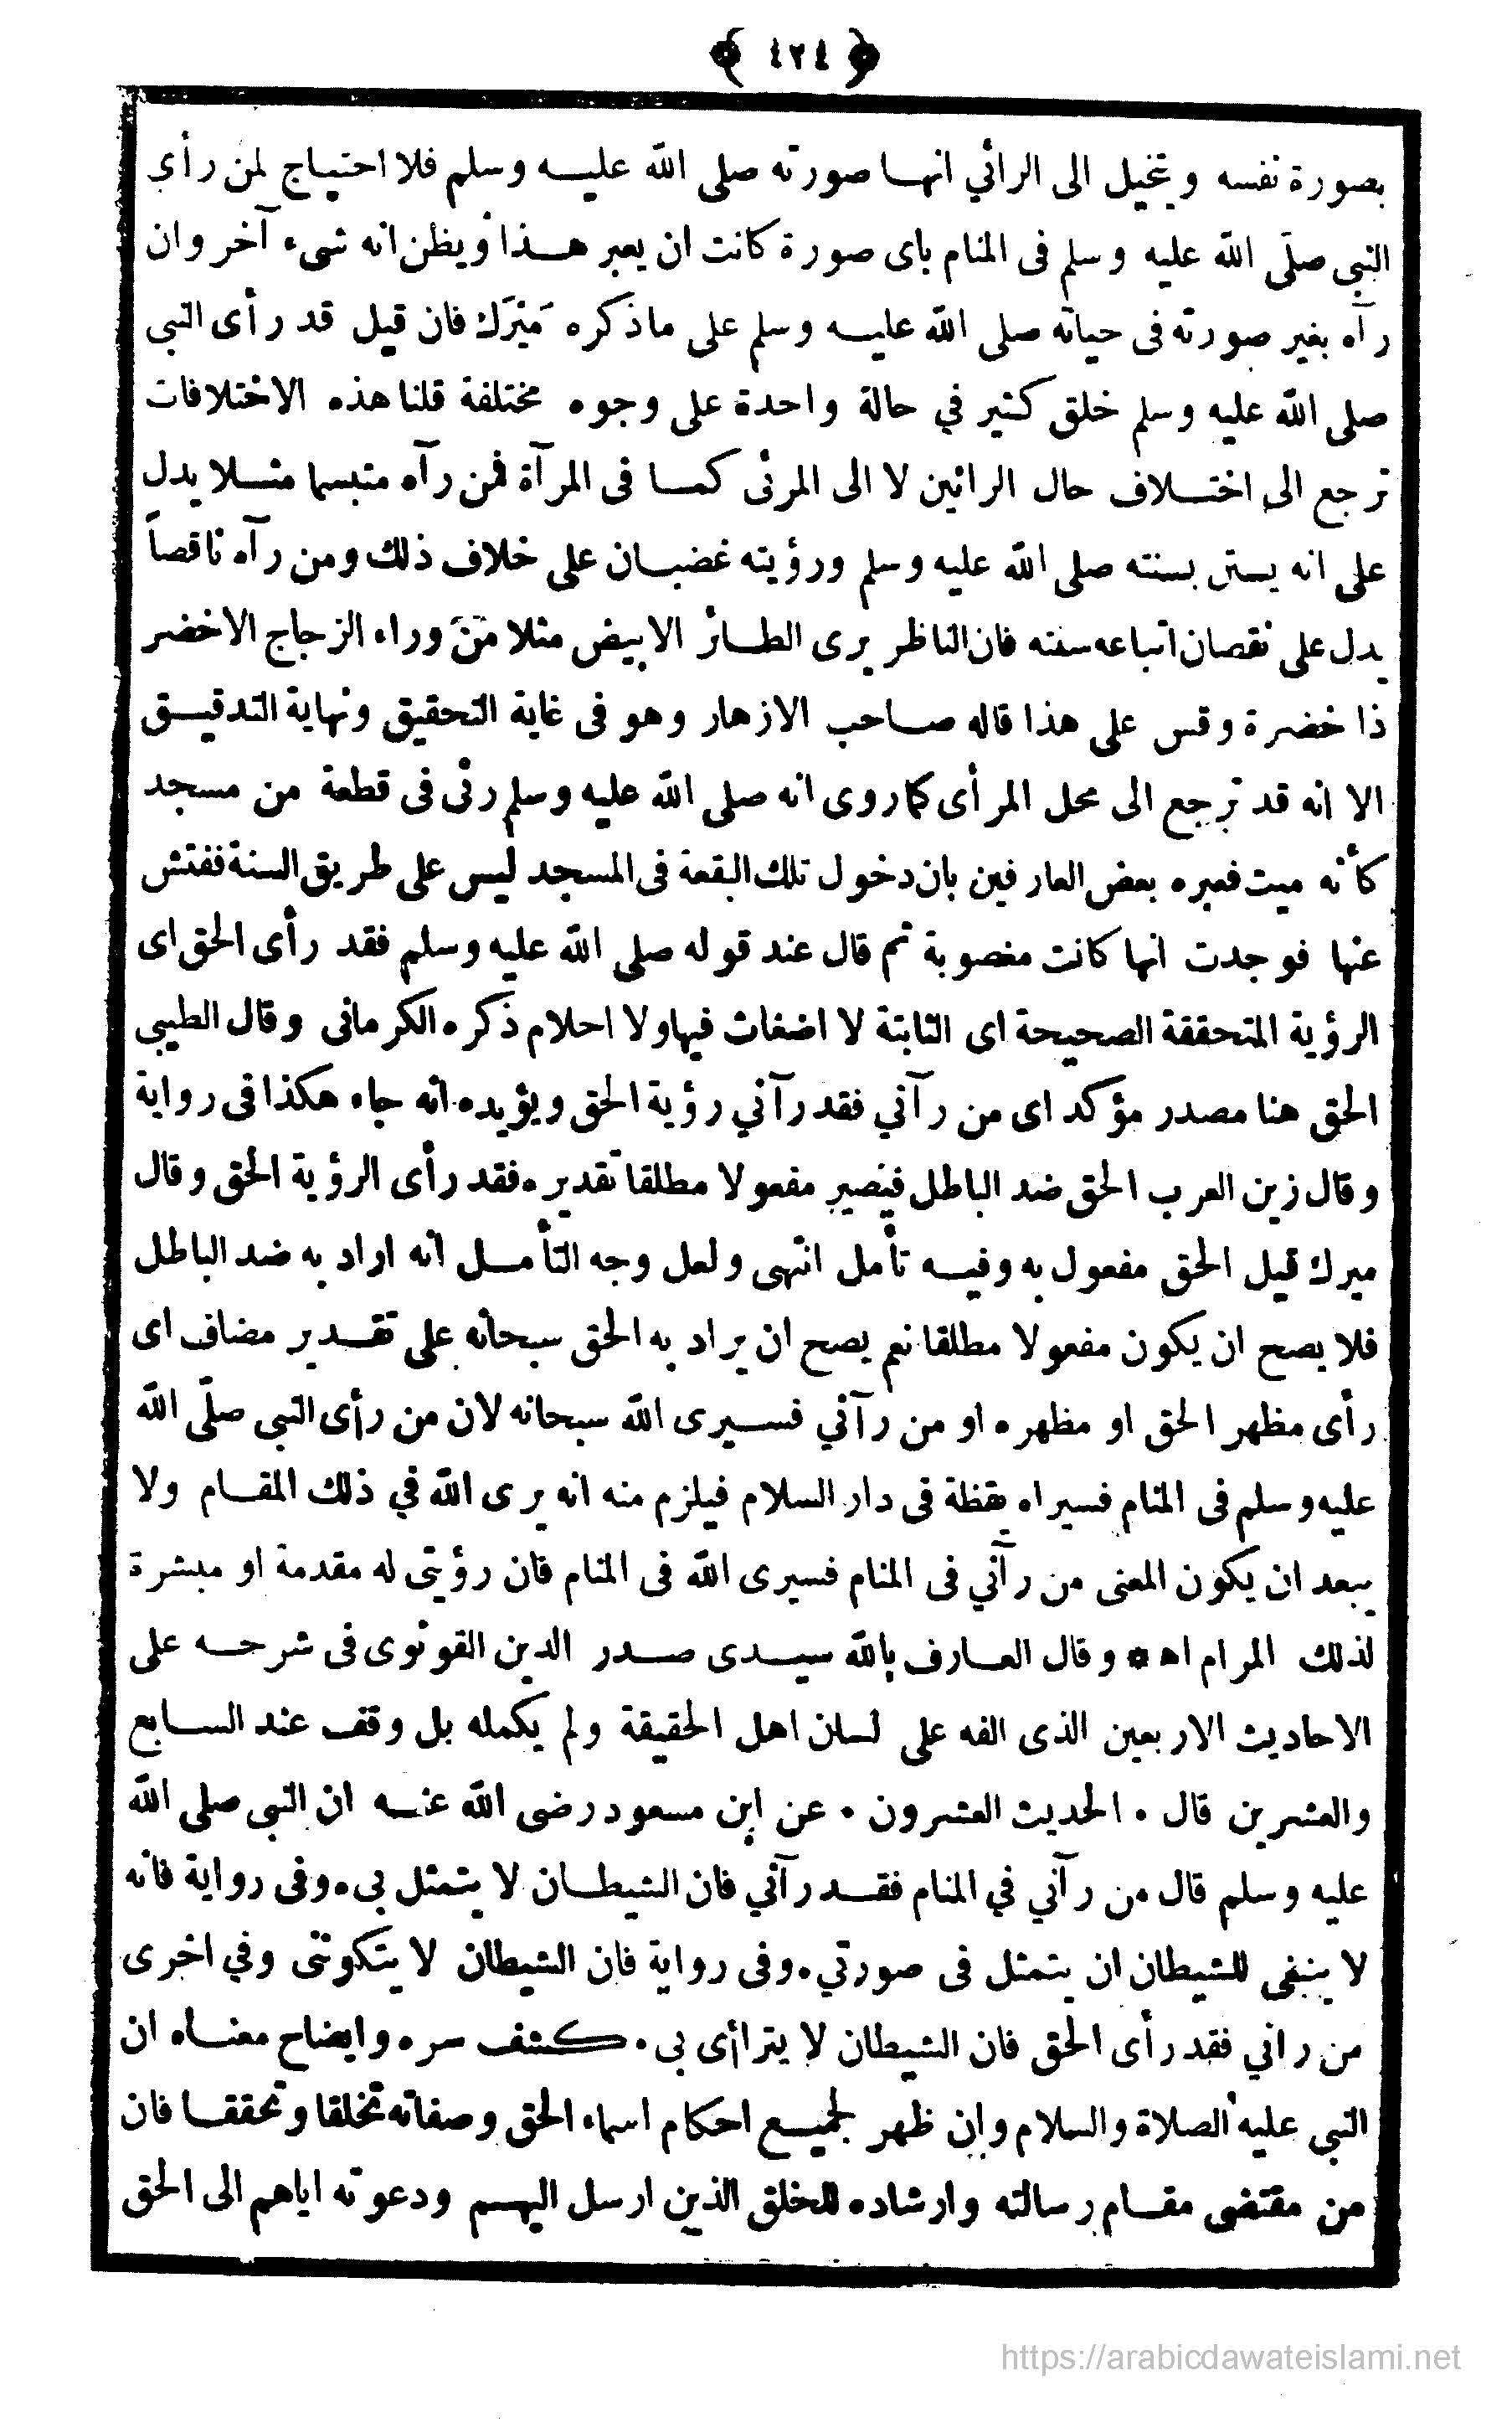 ﴿ ٤٢٤ ﴾
بصورة نفسه ويتخيل الى الرائي انها صورته صلى الله عليه وسلم فلا احتياج لمن رأى
النبى صلّى الله عليه وسلم فى المنام باى صورة كانت ان يعبر هذا ويظن انه شىء آخر وان
رآه بغير صورته فى حياته صلى الله عليه وسلم على ماذكره مَيْرَك فان قيل قد رأى النبى
صلى الله عليه وسلم خلق كثير في حالة واحدة على وجوه مختلفة قلنا هذه الاختلافات
ترجع الى اختلاف حال الرائين لا الى المرئى كما فى المرآة فمن رآه متبسما مثلا يدل
على انه يستن بسنته صلى الله عليه وسلم ورؤيته غضبان على خلاف ذلك ومن رآه ناقصاً
يدل على نقصان اتباعه سنته فان الناظر يرى الطائر الابيض مثلا من وراء الزجاج الاخضر
ذا خضرة وقس على هذا قاله صاحب الازهار وهو فى غاية التحقيق ونهاية التدقيق
الا انه قد ترجع الى محل المرأى كما روى انه صلى الله عليه وسلم رئى فى قطعة من مسجد
كأنه ميت فعبره بعض العارفين بان دخول تلك البقعة فى المسجد ليس على طريق السنة ففتش
عنها فوجدت انها كانت مغصوبة ثم قال عند قوله صلى الله عليه وسلم فقد رأى الحق اى
الرؤية المتحققة الصحيحة اى الثابتة لا اضغاث فيها ولا احلام ذكره الكرمانى وقال الطيبي
الحق هنا مصدر مؤكد اى من رآني فقد رآني رؤية الحق ويؤيده انه جاء هكذا فى رواية
وقال زين العرب الحق ضد الباطل فيصير مفعولا مطلقا تقديره فقد رأى الرؤية الحق وقال
ميرك قيل الحق مفعول به وفيه تأمل انتهى ولعل وجه التأمل انه اراد به ضد الباطل
فلا يصح ان يكون مفعولا مطلقا نعم يصح ان يراد به الحق سبحانه على تقدير مضاف اى
رأى مظهر الحق او مظهره او من رآني فسيرى الله سبحانه لان من رأى النبى صلّى الله
عليه وسلم فى المنام فسيراه يقظة فى دار السلام فيلزم منه انه يرى الله في ذلك المقام ولا
يبعد ان يكون المعنى من رآني فى المنام فسيرى الله فى المنام فان رؤيتى له مقدمة او مبشرة
لذلك المرام اه * وقال العارف بالله سيدى صدر الدين القونوى فى شرحه على
الاحاديث الاربعين الذى الفه على لسان اهل الحقيقة ولم يكمله بل وقف عند السابع
والعشرين قال . الحديث العشرون . عن ابن مسعود رضى الله عنه ان النبى صلى الله
عليه وسلم قال من رآني في المنام فقد رآني فان الشيطان لا يتمثل بى . وفى رواية فانه
لا ينبغى للشيطان ان يتمثل فى صورتي . وفى رواية فان الشيطان لا يتكوننى وفي اخرى
من رانى فقد رأى الحق فان الشيطان لا يتراأى بى . كشف سره وايضاح معناه ان
النبى عليه الصلاة والسلام وان ظهر لجميع احكام اسماء الحق وصفاته تخلقا وتحققا فان
من مقتضى مقام رسالته وارشاده للخلق الذين ارسل اليهم ودعوته اياهم الى الحق
https://arabicdawateislami.net